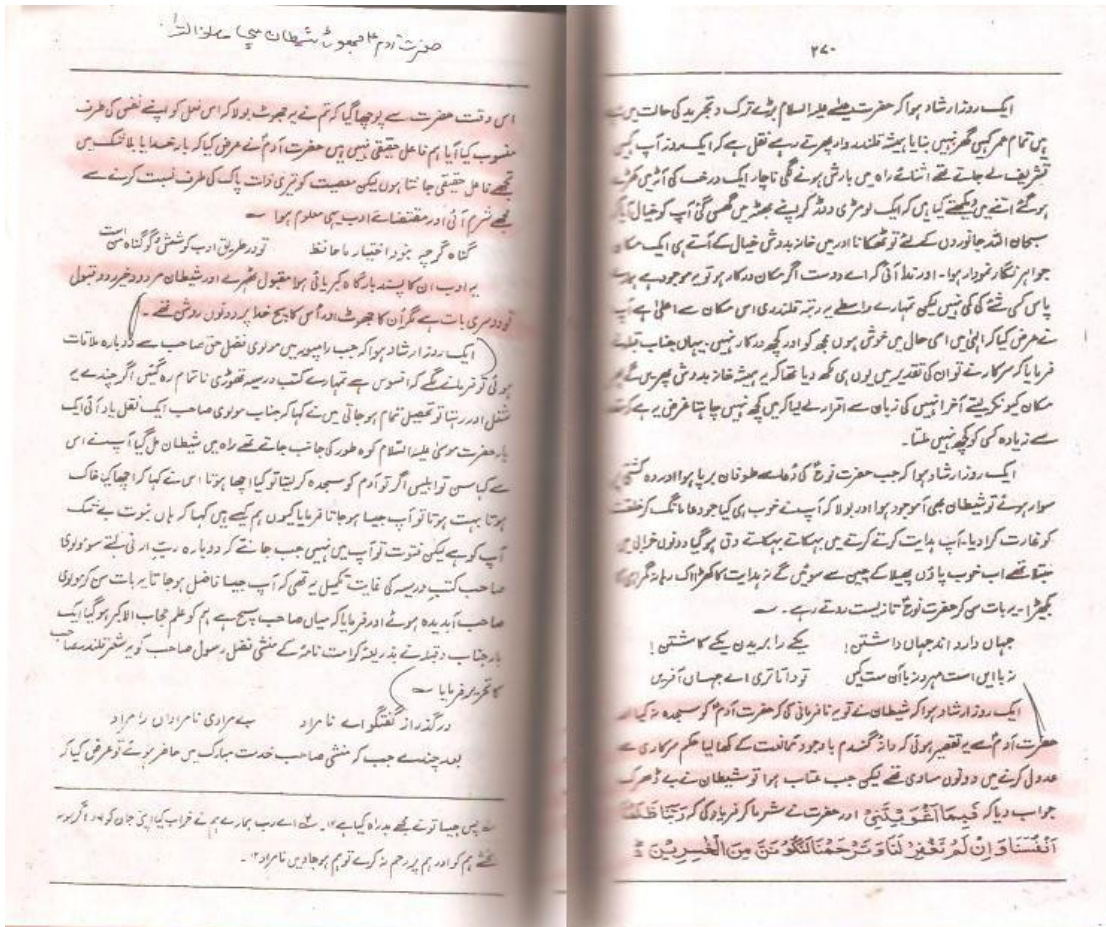 ۲۷۰
ایک روز ارشاد ہوا کہ حضرت عیسٰے علیہ السلام بڑے ترک و تجرید کی حالت میں تھے
ہیں تمام عمر کہیں گھر نہیں بنایا ہمیشہ قلندر وار پھرتے رہے نقل ہے کہ ایک روز آپ کہیں
تشریف لے جاتے تھے اثنائے راہ میں بارش ہونے لگی ناچار ایک درخت کی آڑ میں کھڑے
ہو گئے اتنے میں دیکھتے کیا ہیں کہ ایک لومڑی دوڑ کر اپنے بھٹ میں گھسی گئی آپ کو خیال آیا کہ
سبحان اللہ جانوروں کے لئے تو ٹھکانا اور میں خانہ بدوش خیال کے آتے ہی ایک مکان
جواہر نگار نمودار ہوا۔ اور ندا آئی کہ اے دوست اگر مکان درکار ہو تو یہ موجود ہے ہمارے
پاس کسی شئے کی کمی نہیں لیکن تمہارے واسطے یہ رتبہ قلندری اس مکان سے اعلیٰ ہے آپ
نے عرض کیا کہ الٰہی میں اسی حال میں خوش ہوں مجھ کو اور کچھ درکار نہیں۔ یہاں جناب قبلہ نے
فرمایا کہ سرکار نے تو ان کی تقدیر میں یوں ہی لکھ دیا تھا کہ یہ ہمیشہ خانہ بدوش پھریں گے پھر
مکان کیونکر لیتے آخر انہیں کی زبان سے اقرار لے لیا کہ میں کچھ نہیں چاہتا غرض یہ ہے کہ
سے زیادہ کسی کو کچھ نہیں ملتا۔
ایک روز ارشاد ہوا کہ جب حضرت نوحؑ کی دُعا سے طوفان برپا ہوا اور وہ کشتی پر
سوار ہوئے تو شیطان بھی آموجود ہوا اور بولا کہ آپ نے خوب ہی کیا جو دعا مانگ کر خلقت
کو غارت کرا دیا۔ آپ ہدایت کرتے کرتے میں بہکاتے بہکاتے دق ہو گیا دونوں خرابی میں
مبتلا تھے اب خوب پاؤں پھیلا کے چین سے سوئیں گے نہ ہدایت کا کھڑاک رہا نہ گمراہی کا
بکھیڑا۔ یہ بات سن کر حضرت نوحؑ تا زیست روتے رہے۔ ؎
جہاں دارد اند جہاں داشتن! یکے را بریدن یکے کاشتن!
نہ با ایں است مہر و نہ با آن ست کیں تو دانا تری اے جہاں آفریں
ایک روز ارشاد ہوا کہ شیطان نے تو یہ نافرمانی کی کہ حضرت آدمؑ کو سجدہ نہ کیا اور
حضرت آدمؑ سے یہ تقصیر ہوئی کہ دانہ گندم باوجود ممانعت کے کھا لیا حکم سرکاری سے
عدولی کرنے میں دونوں مساوی تھے لیکن جب عتاب ہوا تو شیطان نے بے دھڑک
جواب دیا کہ فَبِمَا اَغْوَیْتَنِیْ اور حضرت نے شرما کر فریاد کی کہ رَبَّنَا ظَلَمْنَا
اَنْفُسَنَا وَ اِنْ لَّمْ تَغْفِرْ لَنَا وَتَرْحَمْنَا لَنَكُوْنَنَّ مِنَ الْخٰسِرِيْنَ
حضرت آدمؑ جھوٹے شیطان سچا
اس وقت حضرت سے پوچھا گیا کہ تم نے یہ جھوٹ بولا کہ اس فعل کو اپنے نفس کی طرف
منسوب کیا آیا ہم فاعل حقیقی نہیں ہیں حضرت آدمؑ نے عرض کیا کہ بار خدایا بلا شک میں
تجھے فاعل حقیقی جانتا ہوں لیکن معصیت کو تیری ذات پاک کی طرف نسبت کرنے سے
مجھے شرم آئی اور مقتضائے ادب یہی معلوم ہوا ؎
گناہ گرچہ نبود اختیار ما حافظ تو در طریق ادب کوش و گو گناہ من است
یہ ادب ان کا پسند بارگاہ کبریائی ہوا مقبول ٹھہرے اور شیطان مردود خیر رد و قبول
تو دوسری بات ہے مگر اُن کا جھوٹ اور اُس کا سچ خدا پر دونوں روشن تھے۔
ایک روز ارشاد ہوا کہ جب رامپور میں مولوی فضل حق صاحب سے دوبارہ ملاقات
ہوئی تو فرمانے لگے کہ افسوس ہے تمہارے کتب درسیہ تھوڑی نا تمام رہ گئیں اگر چندے یہ
شغل اور رہتا تو تحصیل تمام ہو جاتی میں نے کہا کہ جناب مولوی صاحب ایک نقل یاد آئی ایک
بار حضرت موسیٰ علیہ السلام کوہ طور کی جانب جاتے تھے راہ میں شیطان مل گیا آپ نے اس
سے کہا سن تو ابلیس اگر تو آدم کو سجدہ کر لیتا تو کیا اچھا ہوتا اس نے کہا کہ اچھا کیا خاک
ہوتا بہت ہوتا تو آپ جیسا ہو جاتا فرمایا کیوں ہم کیسے ہیں کہا کہ ہاں نبوت بے شک
آپ کو ہے لیکن فتوت تو آپ میں نہیں جب جانتے کہ دوبارہ رب ارنی کہتے سو مولوی
صاحب کتب درسیہ کی غایت تکمیل یہ تھی کہ آپ جیسا فاضل ہو جاتا یہ بات سن کر مولوی
صاحب آبدیدہ ہوئے اور فرمایا کہ میاں صاحب سچ ہے ہم کو علم حجاب الاکبر ہو گیا ایک
بار جناب و قبلہ نے بذریعۂ کرامت نامۂ کے منشی فضل رسول صاحب کو یہ شعر قلندر صاحب
کا تحریر فرمایا ؎
درگذر از گفتگو اے نامراد بے مرادی نامراداں را مراد
بعد چندے جب کہ منشی صاحب خدمت مبارک میں حاضر ہوئے تو عرض کیا کہ
پس جیسا تو نے مجھے بد راہ کیا ہے ۱۲۔ اے رب ہمارے ہم نے خراب کیا اپنی جان کو اور اگر تو نہ
بخشے ہم کو اور ہم پر رحم نہ کرے تو ہم ہو جاویں نامراد ۱۲۔